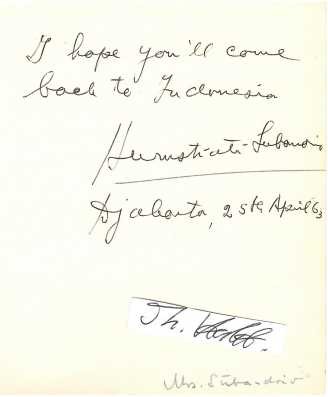 I hope you'll come
back to Indonesia
Hurustiati Subandrio
Djakarta, 25th April 63
Th.
Mrs. Subandrio